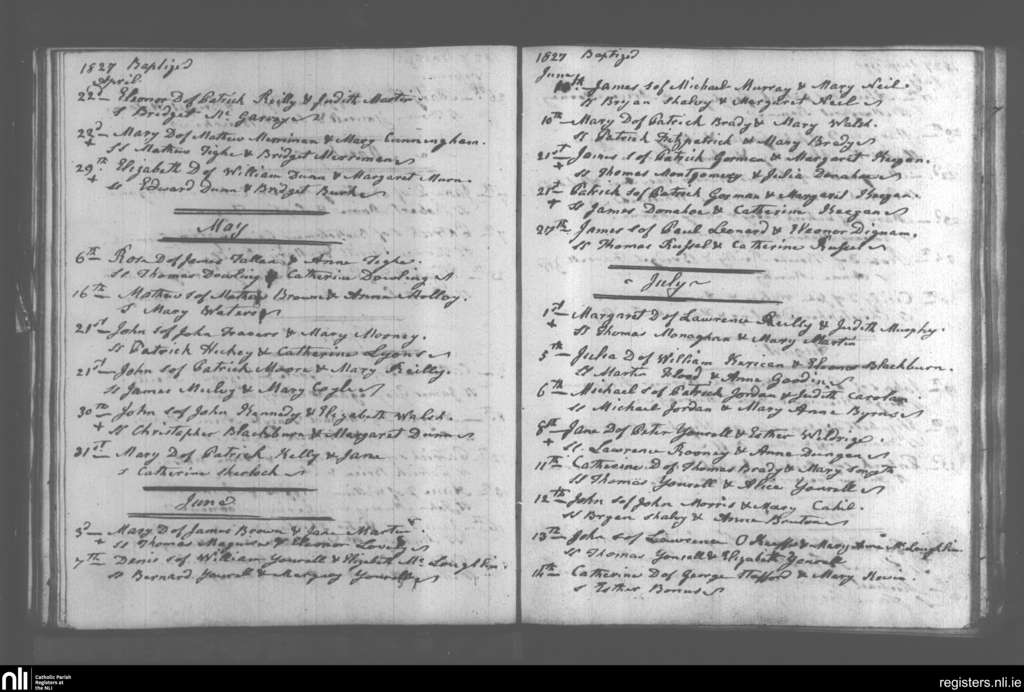 1827 Baptized
April
22d Eleonor D of Patrick Reilly & Judith Martin
S Bridget Mc Garvey
22d Mary D of Mathew Merriman & Mary Cunningham.
+ SS Mathew Tighe & Bridget Merriman
29th Elizabeth D of William Dunn & Margaret
+ SS Edward Dunn & Bridget Burke
May
6th Rose D of James Fallan & Anne Tighe.
SS Thomas Dowling & Catherine Dowling
16th Mathew S of Mathew Brown & Anne Molloy.
S Mary Waters
21st John S of John & Mary Mooney.
SS Patrick Hickey & Catherine Lyons
21st John S of Patrick Moore & Mary Reilly.
SS James & Mary Coyle
30th John S of John Kennedy & Elizabeth Walsh.
+ SS Christopher Blackburn & Margaret Dunn
31st Mary D of Patrick Kelly & Jane
S Catherine Sherlock
June
3d Mary D of James Brown & Jane Martin
+ SS Thomas Maguire & Eleonor
7th Denis S of William Yourell & Elizabeth Mc Loughlin.
SS Bernard Yourell & Yourell
1827 Baptized
June
10th James S of Michael Murray & Mary Neil
SS Bryan Shalvy & Margaret Neil
10th Mary D of Patrick Brady & Mary Walsh.
SS Patrick Fitzpatrick & Mary Brady
21st James S of Patrick Gorman & Margaret Keegan.
+ SS Thomas Montgomery & Julia Donahoe
21st Patrick S of Patrick Gorman & Margaret Keegan.
+ SS James Donahoe & Catherine Keegan
27th James S of Paul Leonard & Eleonor Dignam.
SS Thomas Russel & Catherine Russel
July
1st Margaret D of Lawrence Reilly & Judith Murphy.
+ SS Thomas Monaghan & Mary Martin
5th Julia D of William & Eleonor Blackburn.
SS Martin & Anne Goodin
6th Michael S of Patrick Jordan & Judith Carolan
SS Michael Jordan & Mary Anne Byrne
8th Jane D of Peter Yourell & Esther
+ SS Lawrence Rooney & Anne Dungan
11th Catherine D of Thomas Brady & Mary Smyth
SS Thomas Yourell & Alice Yourell
12th John S of John Morris & Mary Cahil.
SS Bryan Shalvy & Anne
13th John S of Lawrence O Keeffe & Mary Anne McLoughlin
SS Thomas Yourell & Elizabeth Yourell
14th Catherine D of George Stafford & Mary
S Esther
nli
Catholic Parish
Registers at
the NLI
registers.nli.ie